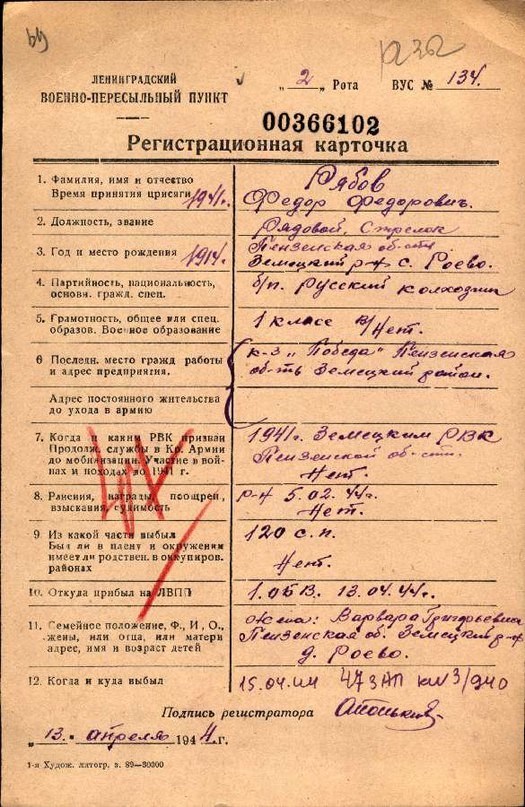 ЛЕНИНГРАДСКИЙ
ВОЕННО-ПЕРЕСЫЛЬНЫЙ ПУНКТ
„ 2 " Рота ВУС № 134.
00366102
Регистрационная карточка
1. Фамилия, имя и отчество Рябов
Время принятия присяги 1941г. Федор Федорович.
2. Должность, звание Рядовой. Стрелок
3. Год и место рождения 1914г. Пензенская об-ть
Земецкий р-н с. Роево.
4. Партийность, национальность, б/п. Русский колхозник
основн. гражд. спец.
5. Грамотность, общее или спец. 1 класс в/Нет.
образов. Военное образование
6 Последн. место гражд работы к-з „Победа" Пензенская
и адрес предприятия. об-ть Земецкий район.
Адрес постоянного жительства
до ухода в армию
7. Когда и каким РВК призван 1941г. Земецким РВК
Продолж. службы в Кр. Армии Пензенской об-сти.
до мобилизации. Участие в вой-
нах и походах до 1941 г. Нет.
8. Ранения, награды, поощрен., р-н 5.02.44г.
взыскания, судимость Нет.
9 Из какой части выбыл 120 с.п.
Был ли в плену и окружении
имеет ли родствен. в оккупиров. Нет.
районах
10. Откуда прибыл на ЛВПП 1.ОБВ. 13.04.44г.
11. Семейное положение, Ф., И., О., Жена: Варвара Григорьевна
жены, или отца, или матери Пензенская об. Земецкий р-н
адрес, имя и возраст детей д. Роево.
12. Когда и куда выбыл 15.04.44 473АП КМ3/940
Подпись регистратора
„ 13. " апреля 1944г.
1-я Худож. литогр. з. 89—30300